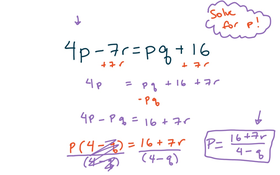 Solve
for p!
4p - 7r = pq + 16
+7r +7r
4p = pq + 16 + 7r
-pq
4p - pq = 16 + 7r
p(4 - q) = 16 + 7r
(4 - q) (4 - q)
P = 16 + 7r
4 - q